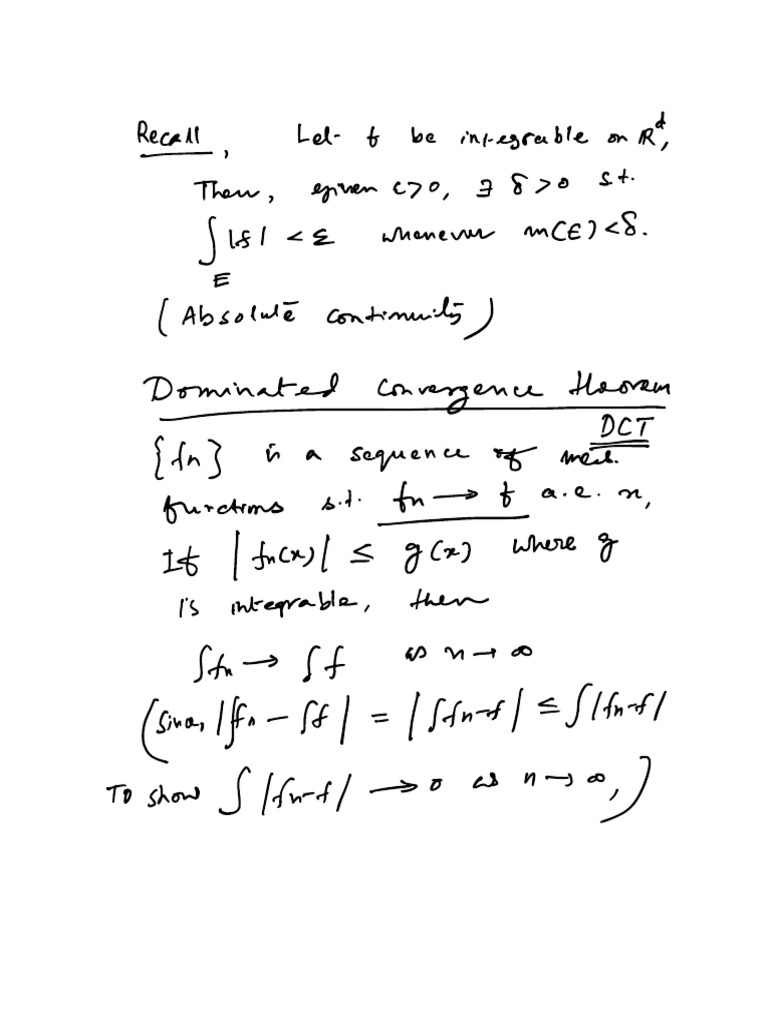 Recall, Let f be integrable on ℝᵈ,
Then, given ε>0, ∃ δ>0 s.t.
∫_E |f| < ε whenever m(E)<δ.
(Absolute continuity)
Dominated convergence theorem
DCT
{fn} is a sequence of meas.
functions s.t. fn → f a.e. x,
If |fn(x)| ≤ g(x) where g
is integrable, then
∫fn → ∫f as n→∞
(Since, |∫fn − ∫f| = |∫fn−f| ≤ ∫|fn−f|
To show ∫|fn−f| → 0 as n→∞,)